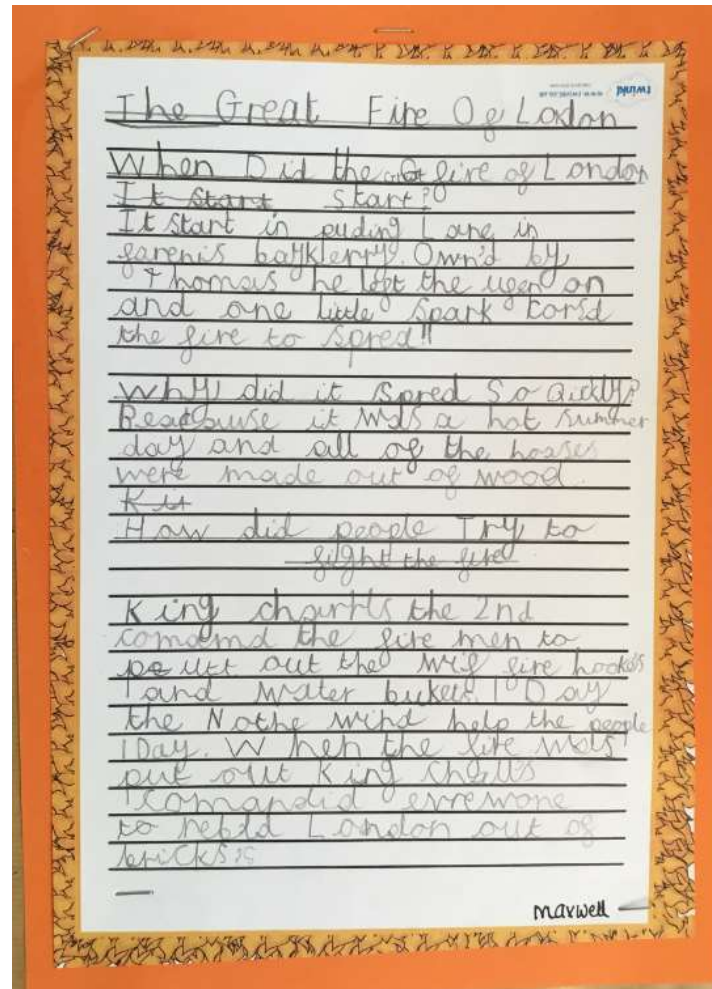 twinkl www.twinkl.co.uk
The Great Fire Of London
When Did the Gt fire of London
It start start?
It start in puding Lane in
farenis bayklerry. Own'd by
Thomas he left the ugen on
and one little spark corsd
the fire to spred!!
Why did it spred So Qickly?
Beacause it was a hot summer
day and all of the hoases
were made out of wood.
K it
How did people Try to
fight the fire
King charrls the 2nd
comamd the fire men to
pe utt out the wif fire hookes
and water buckets. 1 Day
the Nothe wind help the people
1Day. When the fire was
put out King Challs
Comandid errewone
to rebld London out of
bricks
Maxwell